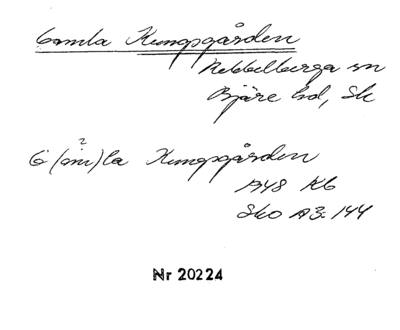 Gamla Kungsgården
Rebbelberga sn
Bjäre hd, Sk
?
G(am)la Kungsgården
1748 Kb
Sko A3:144
Nr 20224